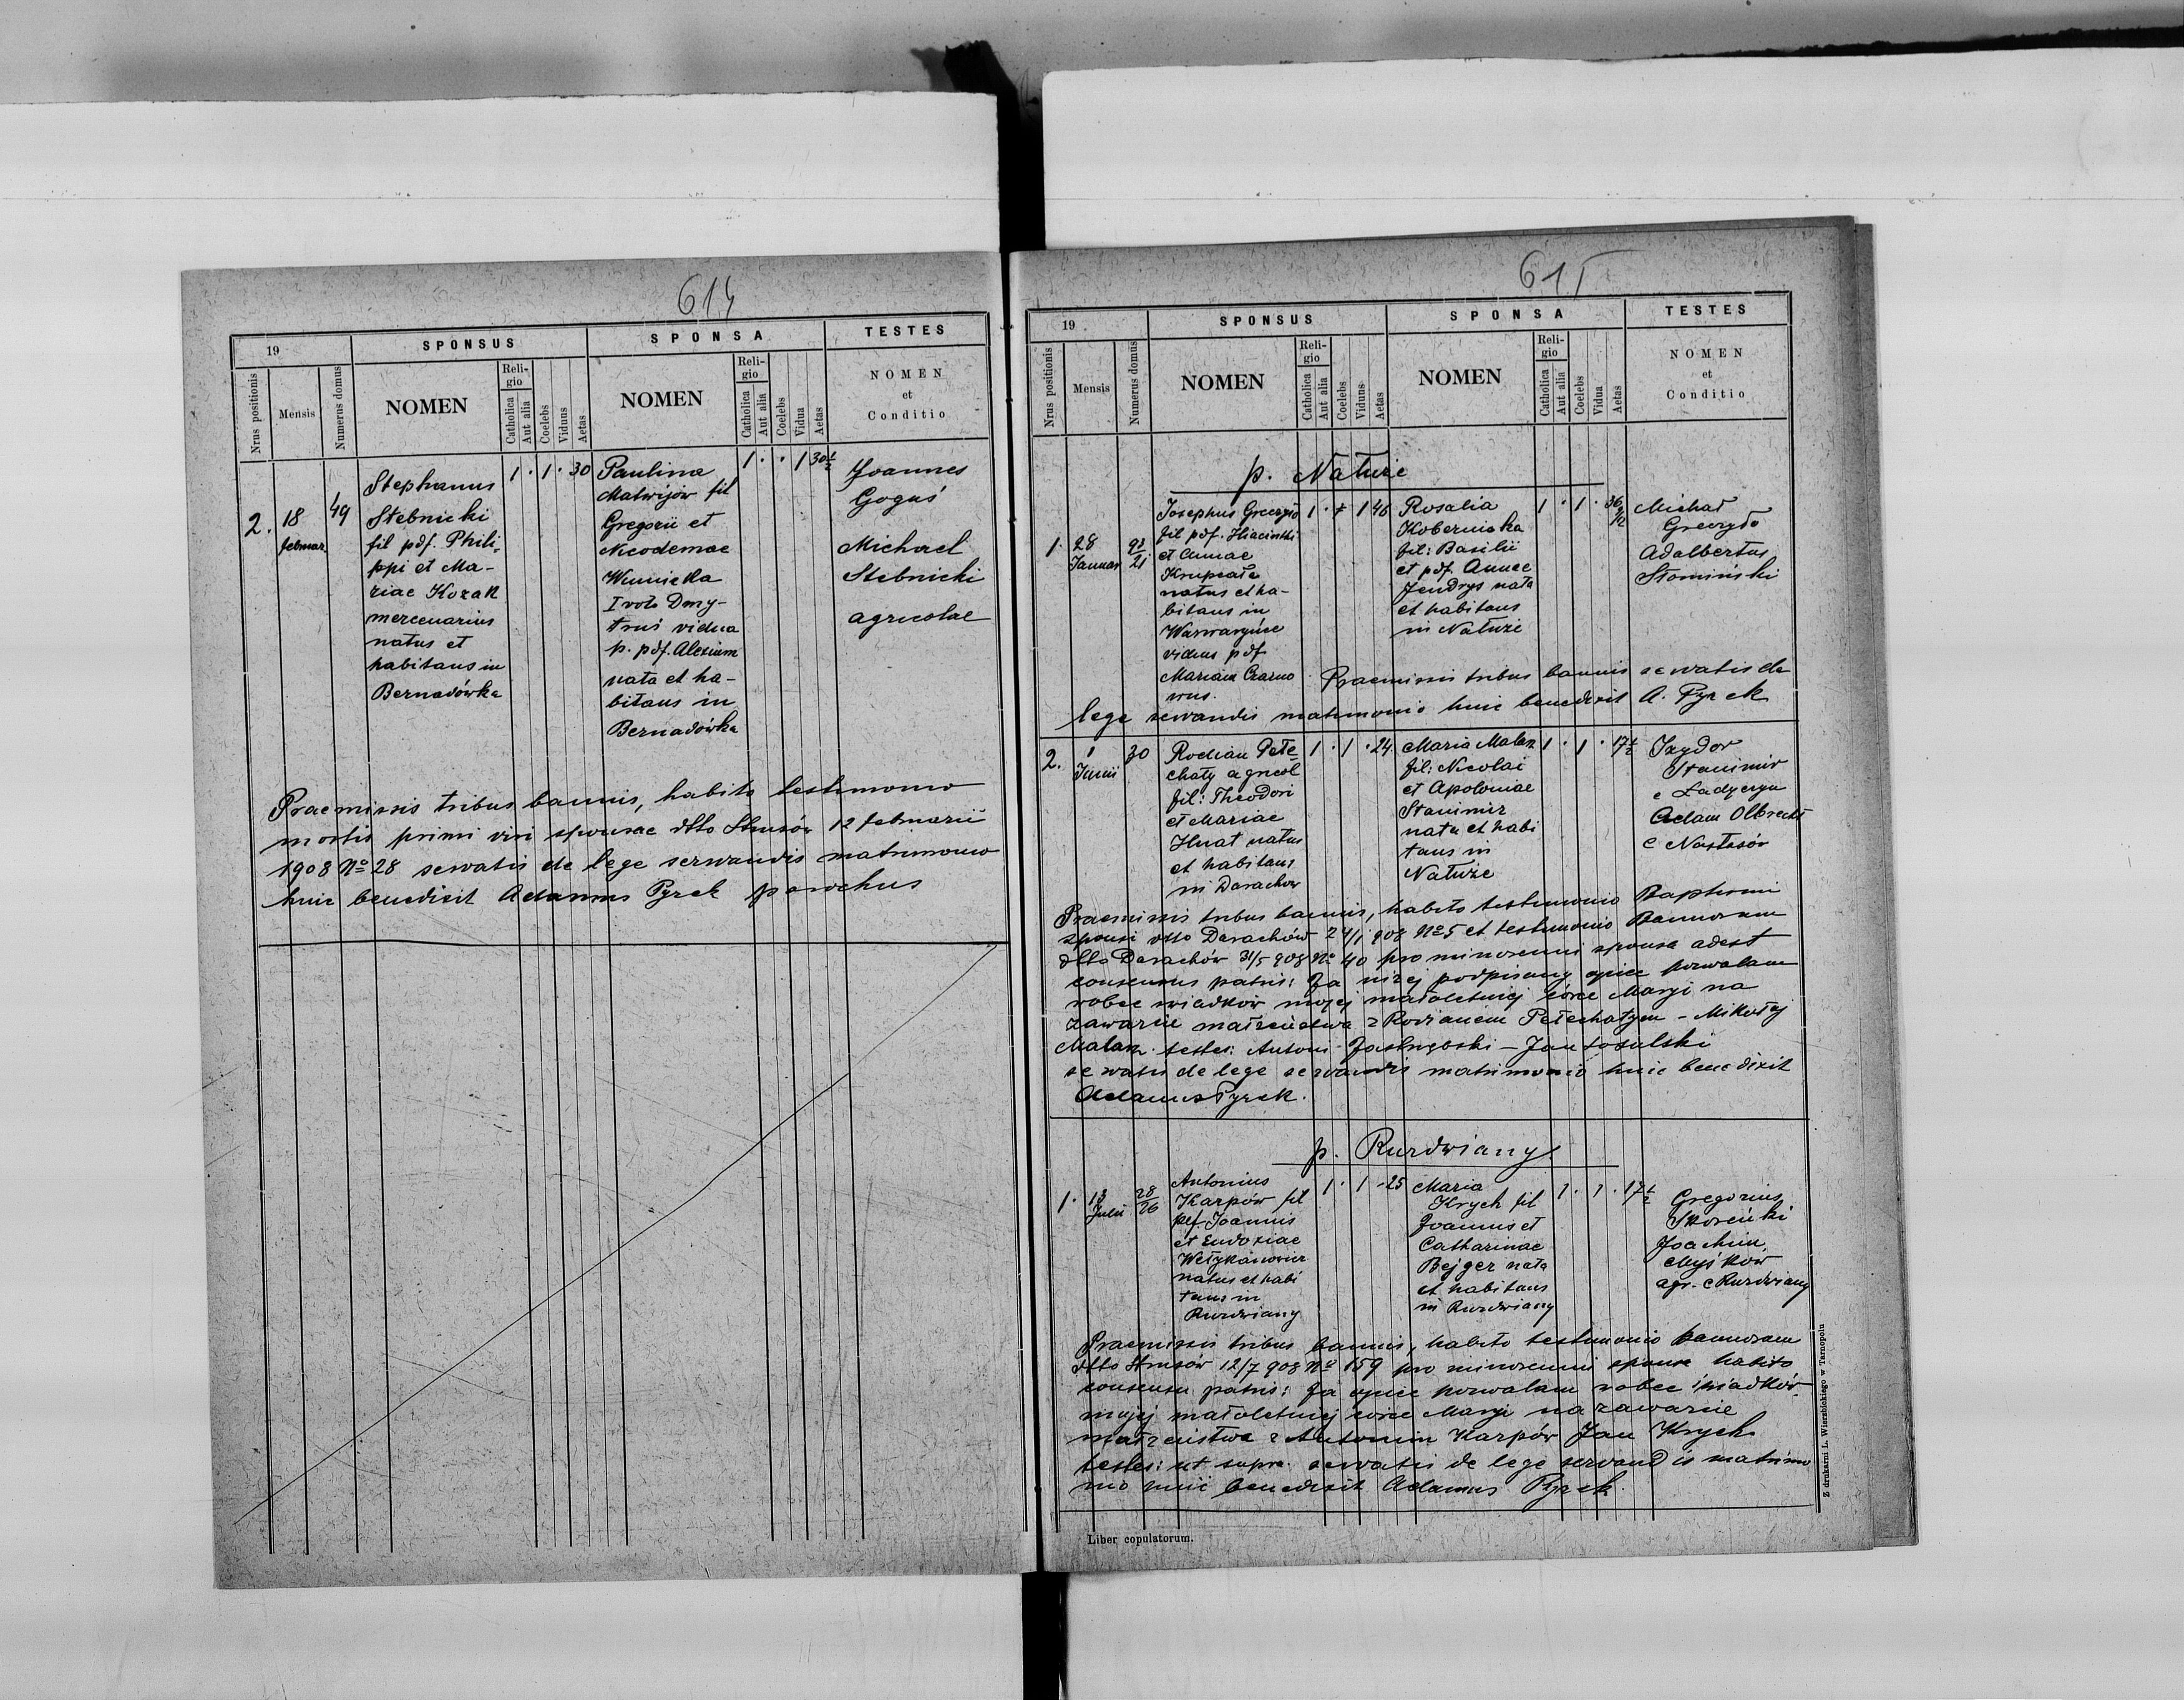 614
19
SPONSUS
SPONSA
TESTES
Nrus positionis
Mensis
Numerus domus
NOMEN
Religio
Catholica
Aut alia
Coelebs
Viduus
Aetas
NOMEN
Religio
Catholica
Aut alia
Coelebs
Vidua
Aetas
NOMEN
et
Conditio
2.
18
februar
49
Stephanus
Stebnicki
fil pdf. Phili-
ppi et Ma-
riae Kozak
mercenarius
natus et
habitans in
Bernadówka
1 · 1 · 30
Paulina
Matwijów fil
Gregorii et
Nicodemae
Winnicka
I voto Dmy-
truś vidua
p. pdf. Alexium
nata et ha-
bitans in
Bernadówka
1 · · 1 30½
Joannes
Goguś
Michael
Stebnicki
agricolae
Praemissis tribus bannis, habito testimonio
mortis primi viri sponsae dtto Strusów 12 februarii
1908 No 28 servatis de lege servandis matrimonio
huic benedixit Adamus Pyrek parochus
615
19
SPONSUS
SPONSA
TESTES
Nrus positionis
Mensis
Numerus domus
NOMEN
Religio
Catholica
Aut alia
Coelebs
Viduus
Aetas
NOMEN
Religio
Catholica
Aut alia
Coelebs
Vidua
Aetas
NOMEN
et
Conditio
p. Nałuże
1.
28
Januar
93/21
Josephus Greczyło
fil pdf. Hiacinthi
et Annae
Krupiała
natus et ha-
bitans in
Warwaryńce
viduus pdf
Mariam Czarno
wus.
1 · 1 46
Rosalia
Kobernicka
fil: Basilii
et pdf. Annae
Jendrys nata
et habitans
in Nałuże
1 · 1 · 36
Michał
Greczyło
Adalbertus
Słomiński
Praemissis tribus bannis servatis de
lege servandis matrimonio huic benedixit A. Pyrek
2.
1
Junii
30
Rodian Pełe-
chaty agricol
fil: Theodori
et Mariae
Hnat natus
et habitans
in Darachow
1 · 1 · 24
Maria Malaz
fil: Nicolai
et Apoloniae
Stanimir
nata et habi
tans in
Nałuże
1 · 1 · 17½
Izydor
Stanimir
e Ladyczyn
Adam Olbrecht
e Nastasów
Praemissis tribus bannis, habito testimonio Baptismi
sponsi dtto Darachów 24/1 908 No 5 et testimonio Bannorum
dtto Darachów 31/5 908 No 40 pro minorenni sponsa adest
consensus patris: Ja niżej podpisany ojciec pozwalam
wobec świadków mojej małoletniej córce Maryi na
zawarcie małżeństwa z Rodianem Pełechatym - Mikołaj
Malaz testes: Antoni Jastrzębski - Jan
servatis de lege servandis matrimonio huic benedixit
Adamus Pyrek.
p. Ruzdwiany
1.
13
Julii
28/26
Antonius
Karpów fil
pdf. Joannis
et Eudoxiae
Wełykanowicz
natus et habi
tans in
Ruzdwiany
1 · 1 · 25
Maria
Krych fil
Joannis et
Catharinae
Bejger nata
et habitans
in Ruzdwiany
1 · 1 · 17½
Gregorius
Skoreńki
Joachim
Myśków
agr. e Ruzdwiany
Praemissis tribus bannis, habito testimonio bannorum
dtto Strusów 12/7 908 No 159 pro minorenni sponsa habito
consensu patris: Ja ojciec pozwalam wobec świadków
mojej małoletniej córce Maryi na zawarcie
małżeństwa z Antonim Karpów Jan Krych
testes: ut supra. servatis de lege servandis matrimo
nio huic benedixit Adamus Pyrek.
Liber copulatorum.
Z drukarni L. Wierzbickiego w Tarnopolu